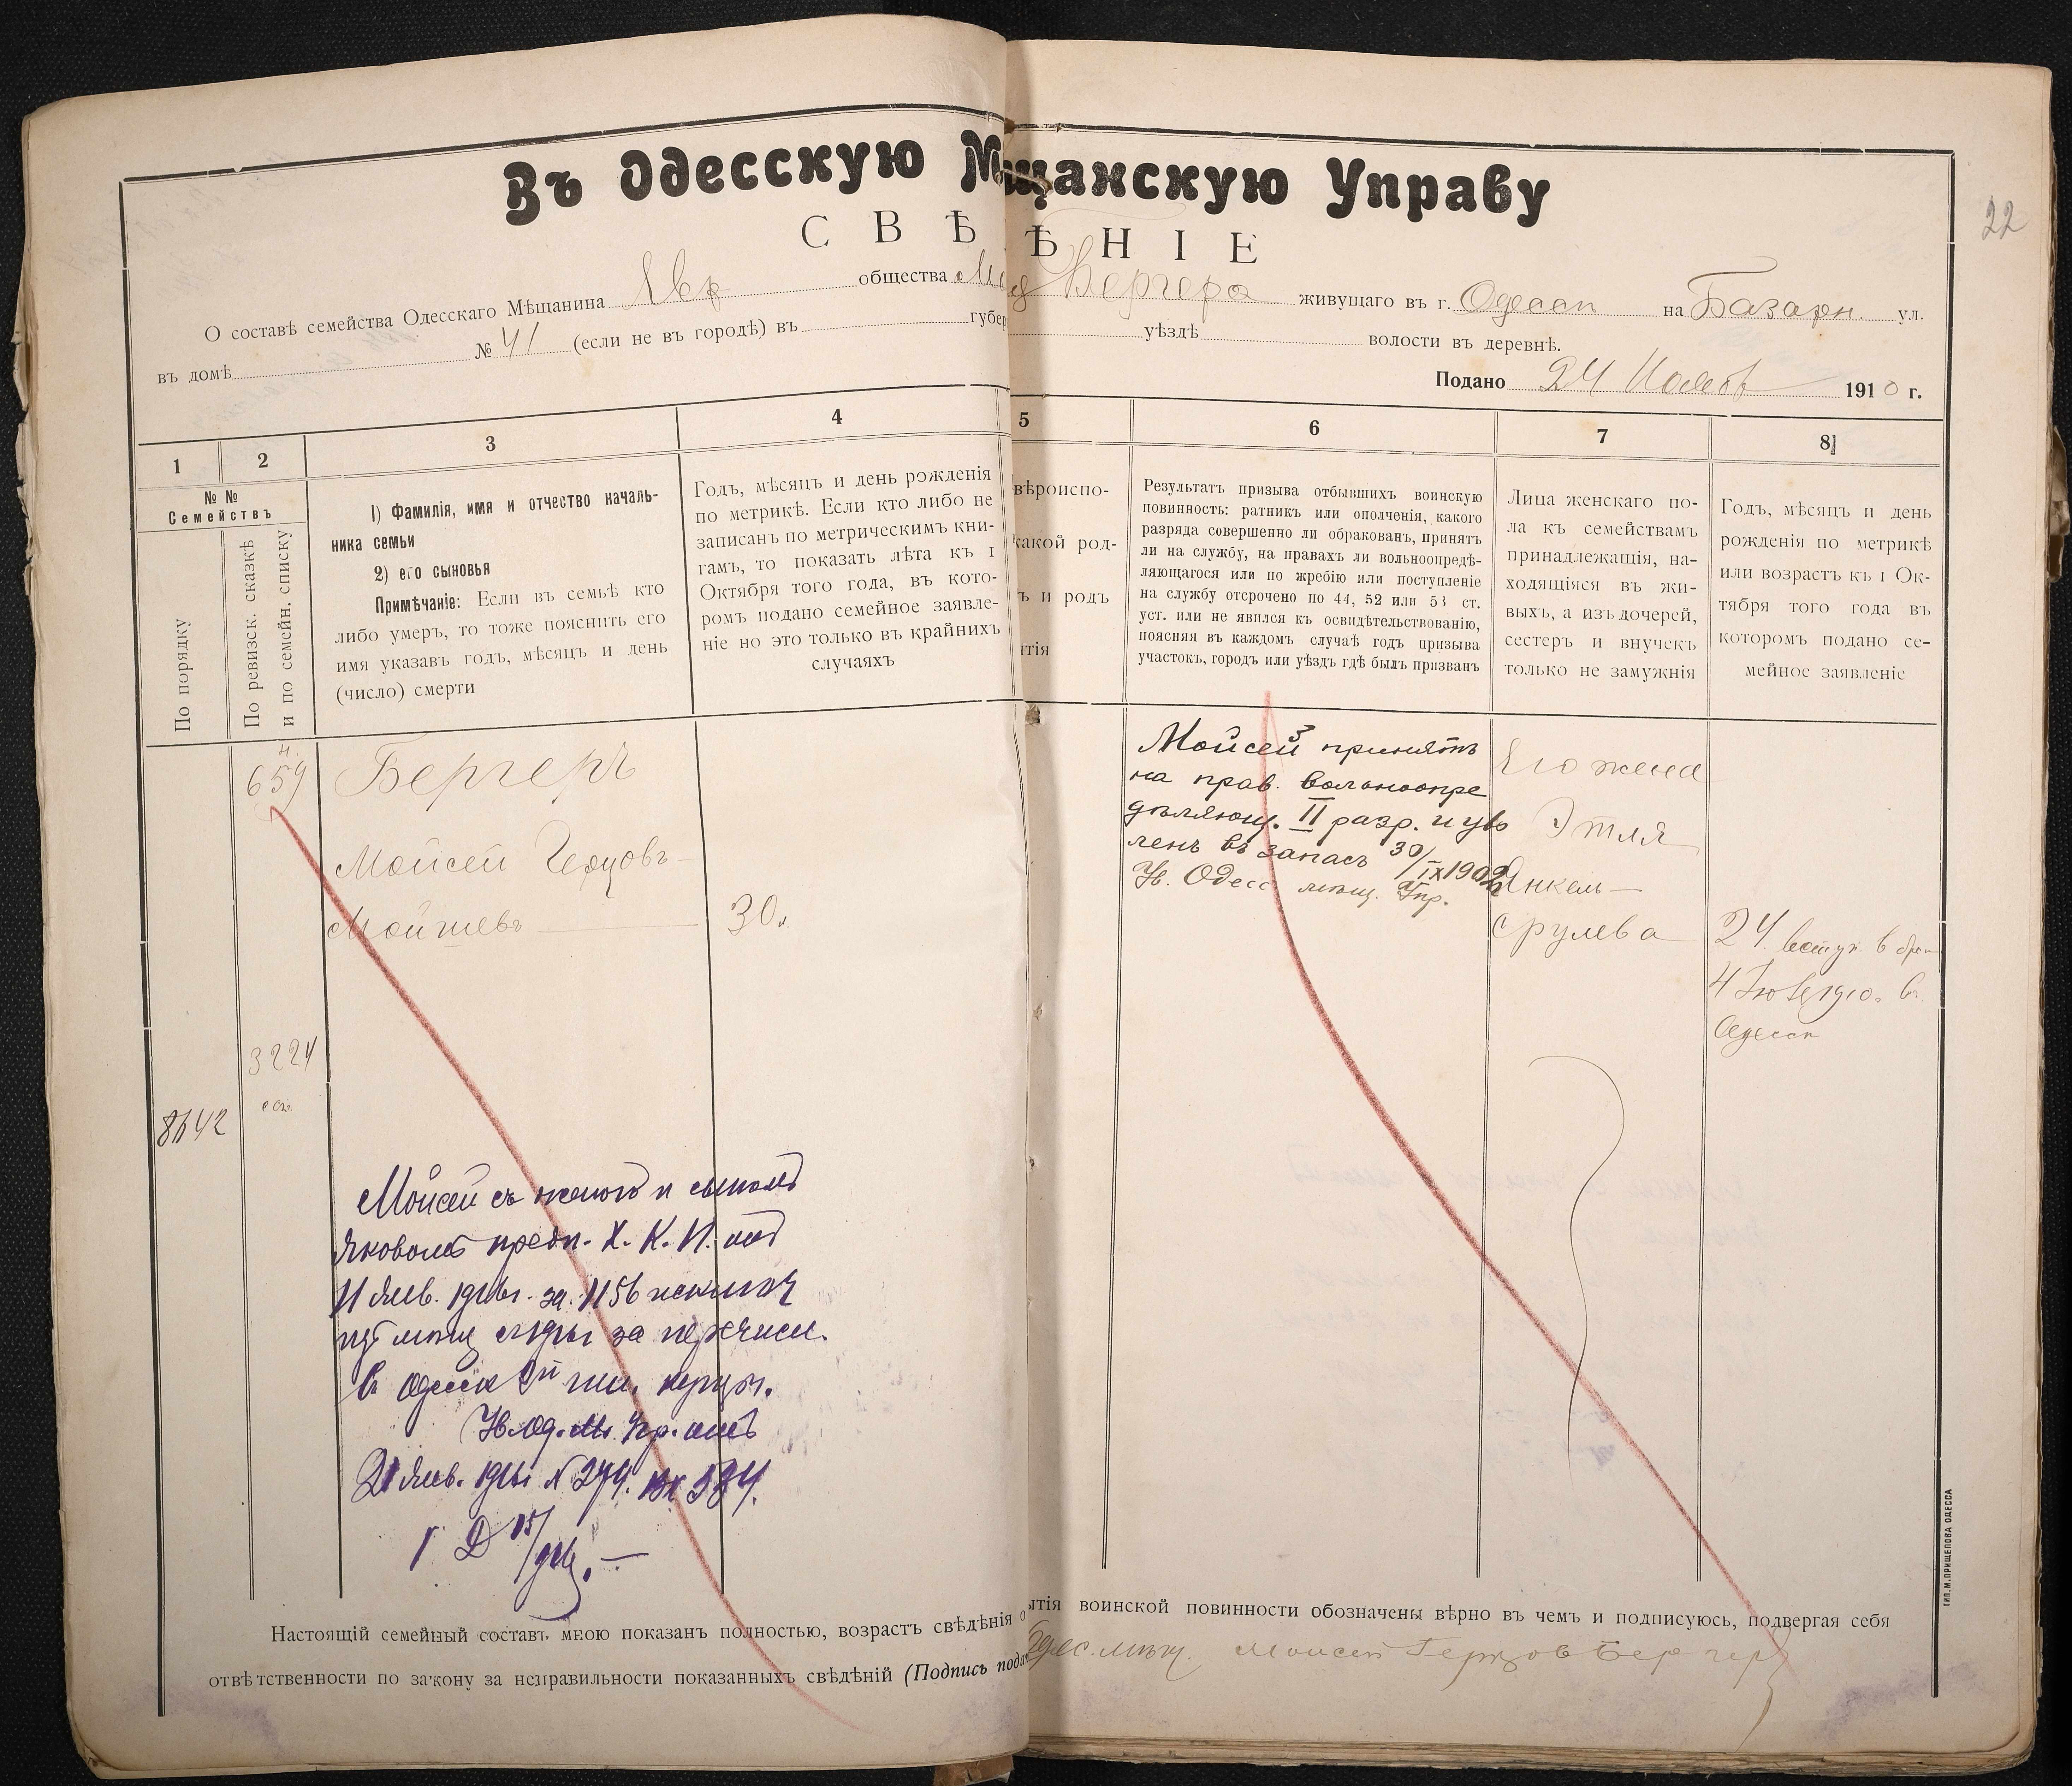 Въ Одесскую Мѣщанскую Управу
22
СВѢ ѢНІЕ
О составѣ семейства Одесскаго Мѣщанина Евр общества Бергера живущаго въ г. Одессѣ на Базарн. ул.
въ домѣ № 41 (если не въ городѣ) въ губер уѣздѣ волости въ деревнѣ.
Подано 24 1910 г.
1 2 3 4 5 6 7 8
№ №
Семействъ
По порядку
По ревизск. сказкѣ
и по семейн. списку
1) Фамилія, имя и отчество началь-
ника семьи
2) его сыновья
Примѣчаніе: Если въ семьѣ кто
либо умеръ, то тоже пояснить его
имя указавъ годъ, мѣсяцъ и день
(число) смерти
Годъ, мѣсяцъ и день рожденія
по метрикѣ. Если кто либо не
записанъ по метрическимъ кни-
гамъ, то показать лѣта къ 1
Октября того года, въ кото-
ромъ подано семейное заявле-
ніе но это только въ крайнихъ
случаяхъ
вѣроиспо-
какой род-
ъ и родъ
ятія
Результатъ призыва отбывшихъ воинскую
повинность: ратникъ или ополченія, какого
разряда совершенно ли обракованъ, принятъ
ли на службу, на правахъ ли вольноопредѣ-
ляющагося или по жребію или поступленіе
на службу отсрочено по 44, 52 или 53 ст.
уст. или не явился къ освидѣтельствованію,
поясняя въ каждомъ случаѣ годъ призыва
участокъ, городъ или уѣздъ гдѣ былъ призванъ
Лица женскаго по-
ла къ семействамъ
принадлежащія, на-
ходящіяся въ жи-
выхъ, а изъ дочерей,
сестеръ и внучекъ
только не замужнія
Годъ, мѣсяцъ и день
рожденія по метрикѣ
или возрастъ къ 1 Ок-
тября того года въ
которомъ подано се-
мейное заявленіе
659
Бергеръ
Мойсей Герцовъ-
Мойшевъ
30 л.
3224
8642
Мойсей принятъ
на прав. вольноопре
дѣляющ. II разр. и уво
ленъ въ запасъ 30/IX 1902
Ув. Одесс мѣщ. Упр.
Его жена
Этля
Янкель-
Срулева
24 вступ. в брак
4 1910 г. въ
Одессѣ
Мойсей съ женою и сыномъ
Яковомъ предп. Х. К. И. отъ
11 Янв. 1916 г. за 1156 исключ
изъ мѣщ с 1916 г за перечисл.
в Одесск 2й гил. купцы.
Ув. Од. М. Упр. отъ
21 Янв. 1916 г № 274. Вх 534.
Настоящій семейный составъ мною показанъ полностью, возрастъ свѣдѣнія о ытія воинской повинности обозначены вѣрно въ чемъ и подписуюсь, подвергая себя
отвѣтственности по закону за неправильности показанныхъ свѣдѣній (Подпись пода Одес. мѣщ. Моисей Герцов Бергер
ТИП. М. ПРИЩЕПОВА ОДЕССА